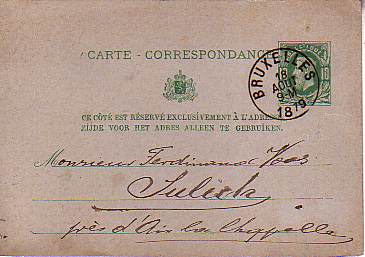 CARTE - CORRESPONDANCE
BRUXELLES
18
AOUT
9-M
1879
10
CE CÔTÉ EST RÉSERVÉ EXCLUSIVEMENT À L'ADRES
ZIJDE VOOR HET ADRES ALLEEN TE GEBRUIKEN.
Monsieur Ferdinand Voss
Julich
près d'Aix la Chappelle